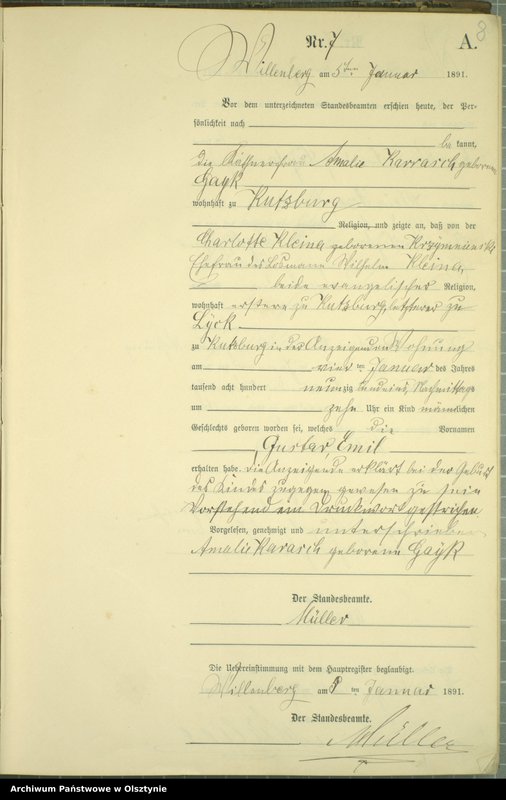 8
Nr. 7 A.
Willenberg am 5ten Januar 1891.
Vor dem unterzeichneten Standesbeamten erschien heute, der Per-
sönlichkeit nach
be kannt,
die Käthnerfrau Amalie Karrasch geborene
Gayk
wohnhaft zu Kutzburg
Religion, und zeigte an, daß von der
Charlotte Kleina geborenen
Ehefrau des Losmann Wilhelm Kleina,
beide evangelischer Religion,
wohnhaft erstere zu Kutzburg, letzterer zu
Lyck
zu Kutzburg in der Anzeigenden Wohnung
am vier ten Januar des Jahres
tausend acht hundert neunzig und eins, Nachmittags
um zehn Uhr ein Kind männlichen
Geschlechts geboren worden sei, welches die Vornamen
Gustav, Emil
erhalten habe. Die Anzeigende erklärt bei der Geburt
des Kindes zugegen gewesen zu sein
Vorstehend ein Druckwort gestrichen
Vorgelesen, genehmigt und unterschrieben
Amalie Karasch geborene Gayk
Der Standesbeamte.
Müller
Die Uebereinstimmung mit dem Hauptregister beglaubigt.
Willenberg am 5 ten Januar 1891.
Der Standesbeamte.
Müller
Archiwum Państwowe w Olsztynie